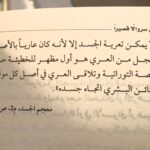 سروالا قصيرا
يمكن تعرية الجسد إلا لأنه كان عارياً بالأصل
جل من العري هو أول مظهر للخطيئة
صة التوراتية وتلاقى العري في أصل كل
ائن البشري اتجاه جسده».
معجم الجسد، م2، ص